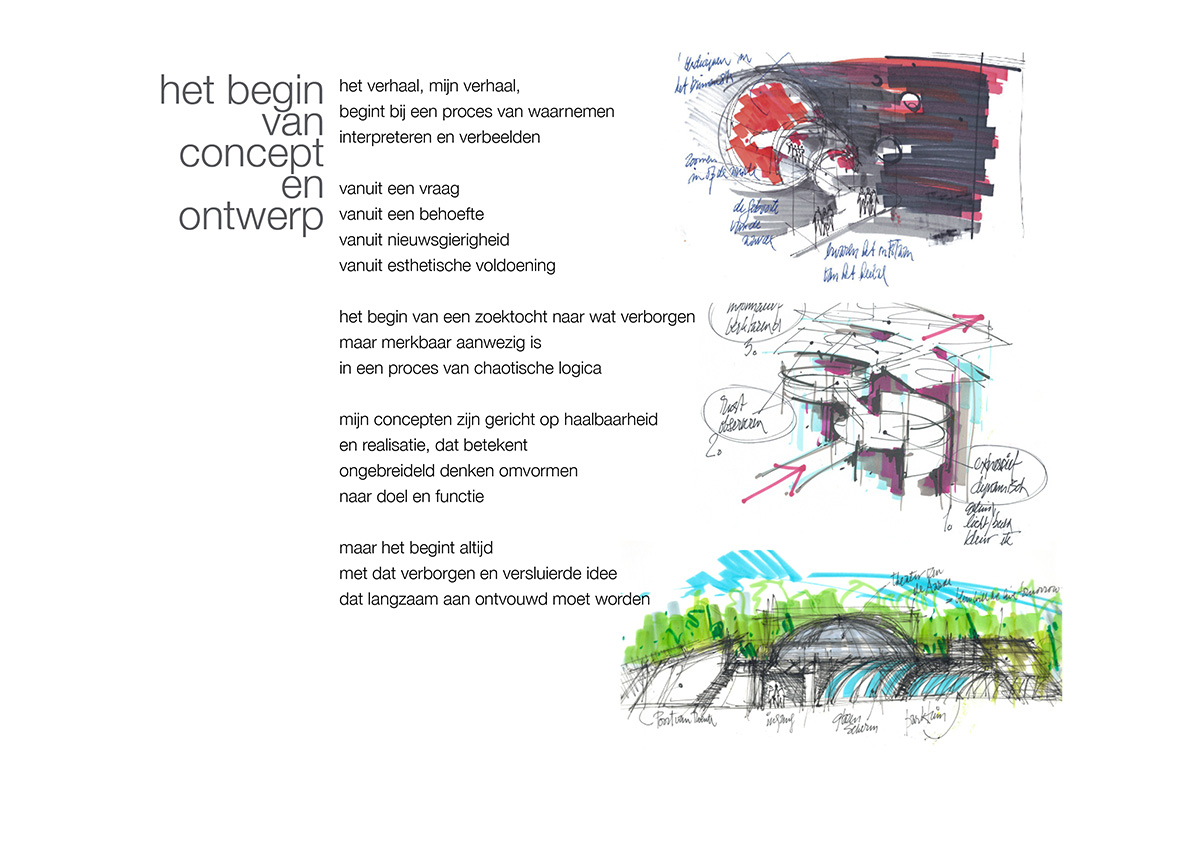 het begin
van
concept
en
ontwerp
het verhaal, mijn verhaal,
begint bij een proces van waarnemen
interpreteren en verbeelden
vanuit een vraag
vanuit een behoefte
vanuit nieuwsgierigheid
vanuit esthetische voldoening
het begin van een zoektocht naar wat verborgen
maar merkbaar aanwezig is
in een proces van chaotische logica
mijn concepten zijn gericht op haalbaarheid
en realisatie, dat betekent
ongebreideld denken omvormen
naar doel en functie
maar het begint altijd
met dat verborgen en versluierde idee
dat langzaam aan ontvouwd moet worden
zoomen
in op de aarde
de geboorte
van de
aarde
ervaren het ontstaan
van het heelal
3.
rust
observeren
2.
explosief
dynamisch
1.
geluid
kleur
theater van
de Aarde
ingang
glazen
scherm